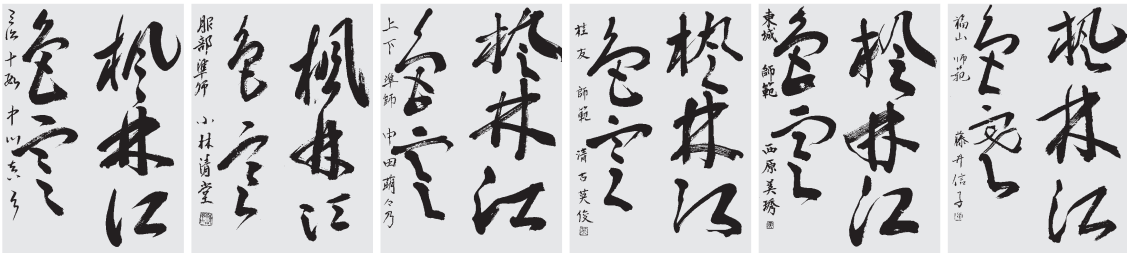 楓林江
色寒
福山 師範 藤井信子
楓林江
色寒
東城 師範 西原美琇
楓林江
色寒
桂友 師範 清古英俊
楓林江
色寒
上下 準師 中田萌々乃
楓林江
色寒
服部 準師 小林清堂
楓林江
色寒
三次 十段 中川